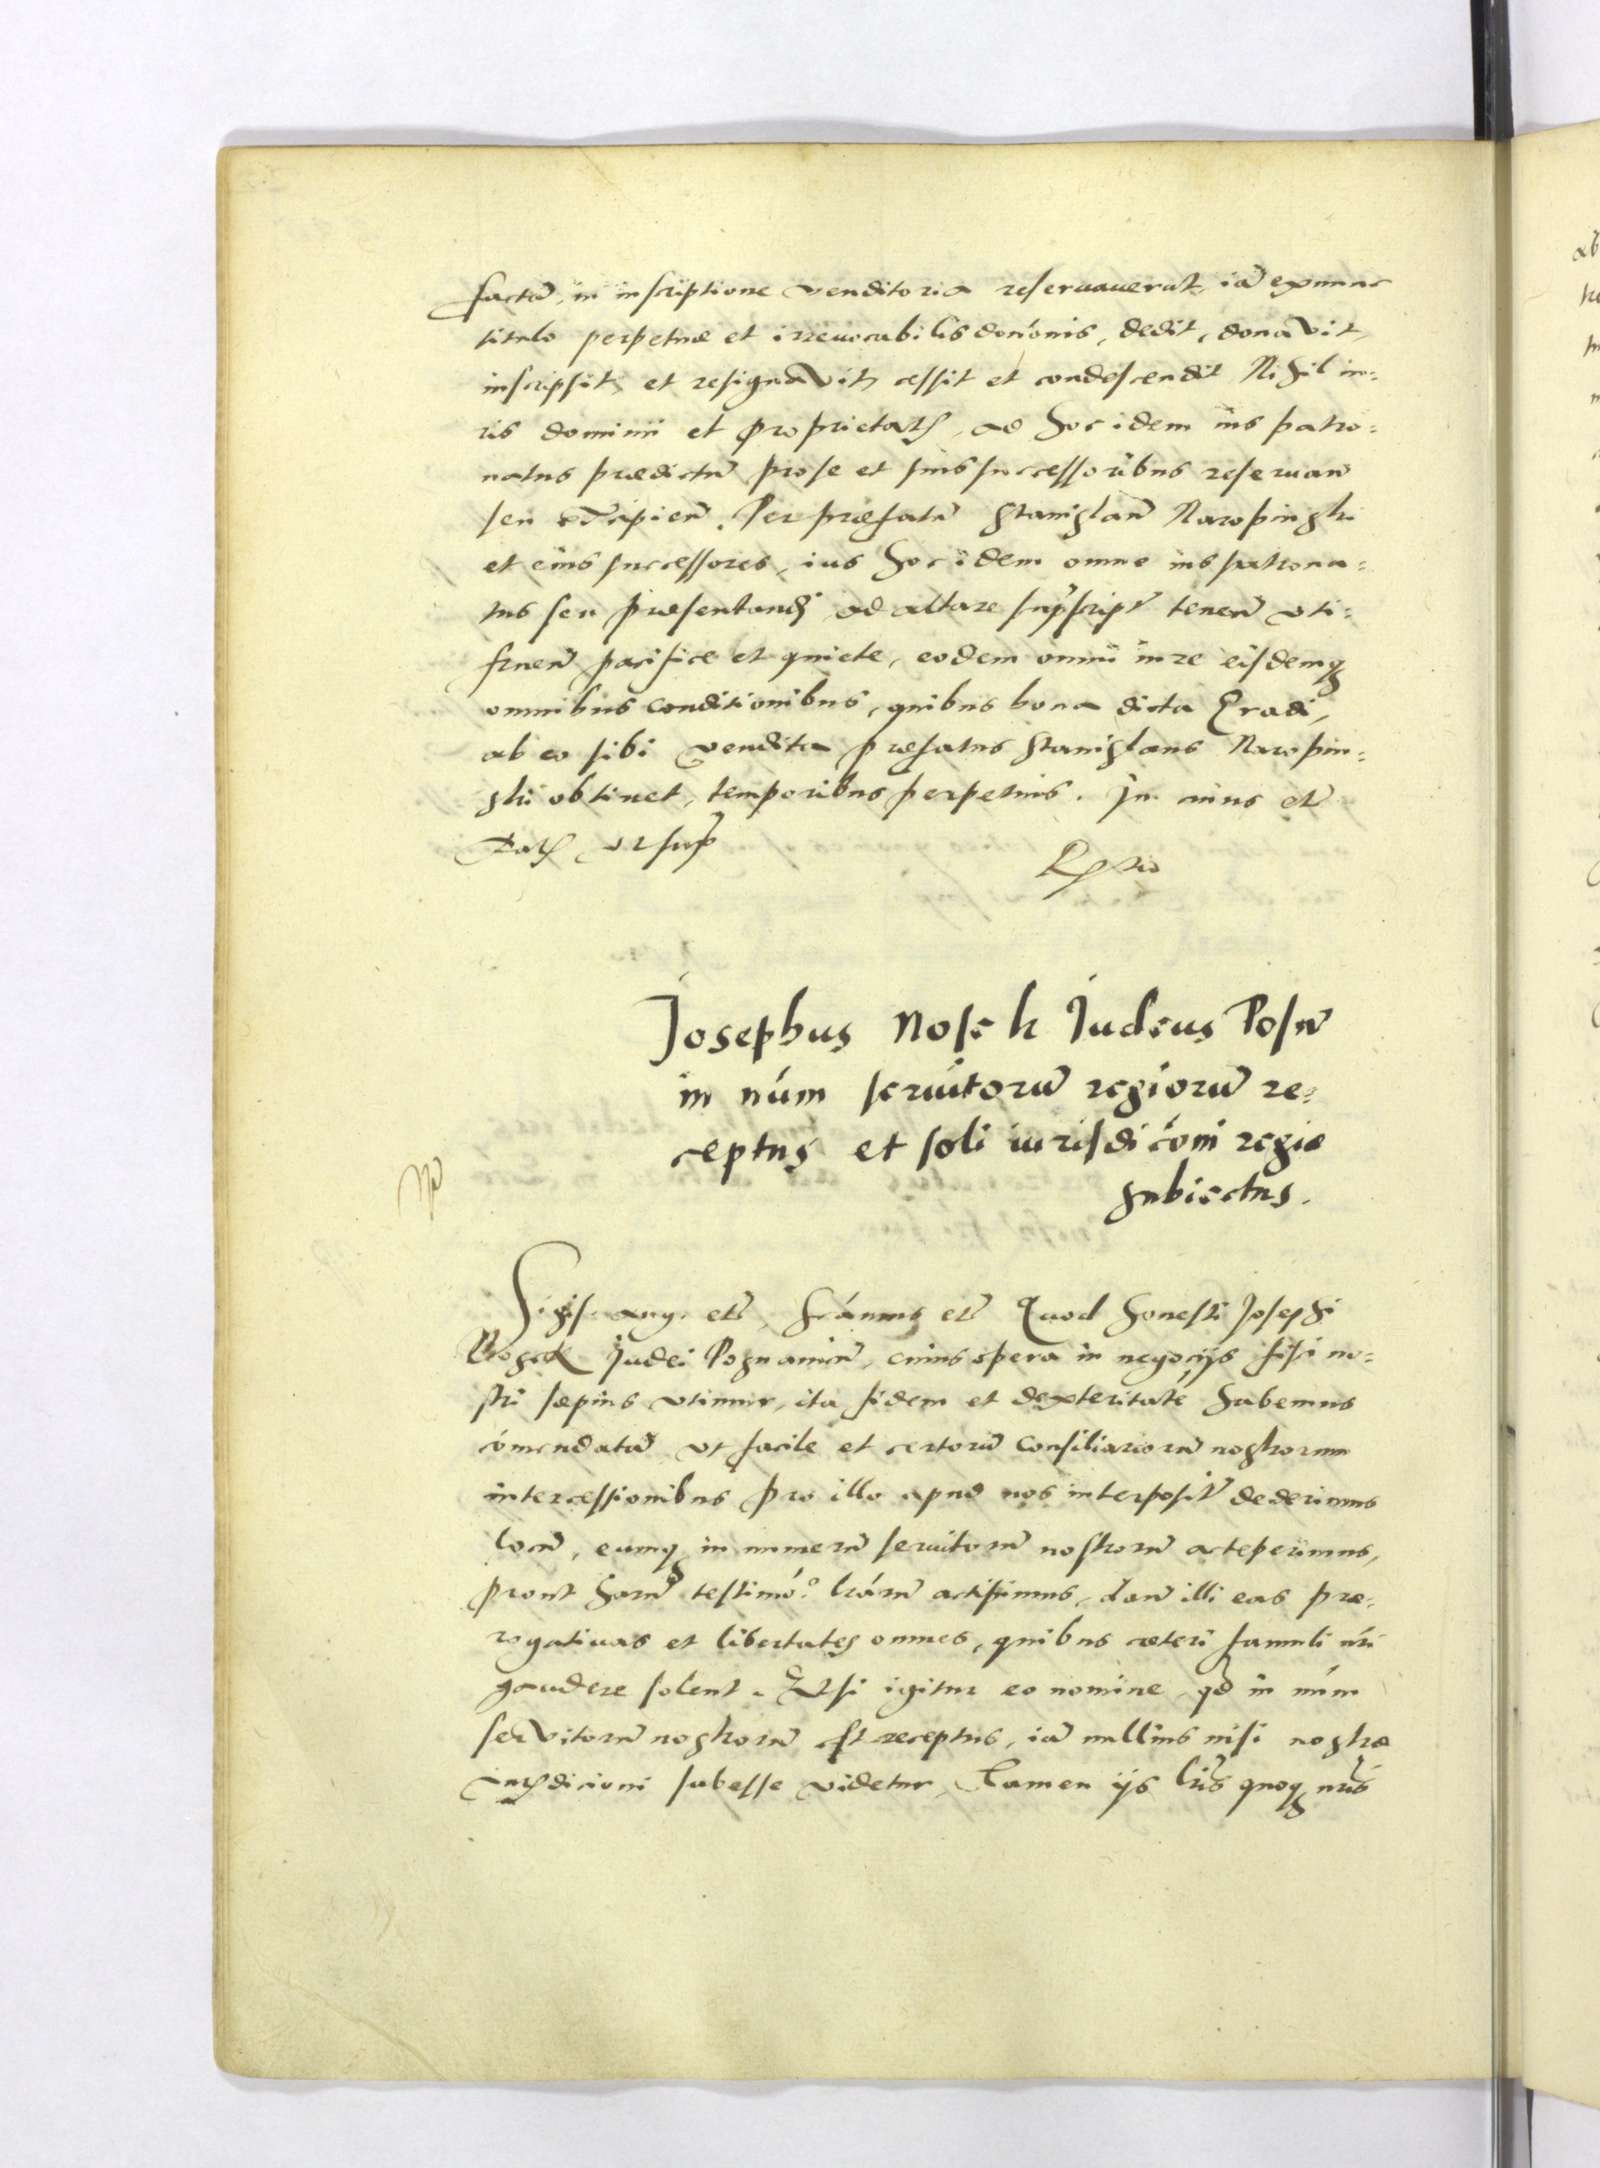 factā, in inscriptione venditoria reservaverat, iā exnunc
titulo perpetuæ et irrevocabilis donōnis, dedit, donavit,
inscripsit, et resignavit, cessit et condescendit Nihil iu=
ris dominii et proprietatis, ad hoc idem ius patro=
natus prædictū pro se et suis successoribus reservan̄
seu excipien̄. Per præfatū Stanislaū Naropinski
et eius successores, ius hoc idem omne ius patrona=
tus seu præsentandi ad altare supscript̄ tenen̄ uti=
fruen̄ pacifice et quiete, eodem omni iure eisdemq
omnibus conditionibus, quibus bona dicta Gradi,
ab eo sibi vendita præfatus Stanislaus Naropin=
ski obtinet, temporibus perpetuis. In cuius etc̄
Dat̄ ut sup̄
Josephus Nosek Judeus Posn̄
in núm servitorū regiorū re=
ceptus et soli iurisdicōni regiæ
subiectus.
Sigis. Aug. etc̄, scámus etc̄ Quod honesti Josephi
Nosek Judei Posnanien̄, cuius opera in negocijs fisci no=
stri sæpius utimur, ita fidem et dexteritatē habemus
cōmendatā, ut facile et certorū Consiliariorū nostrorum
intercessionibus pro illo apud nos interposit̄ dederimus
locū, eumq in numerū servitorū nostrorū acceperimus,
prout harū testimó° lrárū accipimus, dan̄ illi eas præ=
rogativas et libertates omnes, quibus cæteri famuli nŕi
gaudere solent. Etsi igitur eo nomine qd̄ in núm
servitorū nostrorū est receptus, iā nullius nisi nostræ
iurisdicioni subesse videtur, Tamen ijs lŕis quoq nŕis